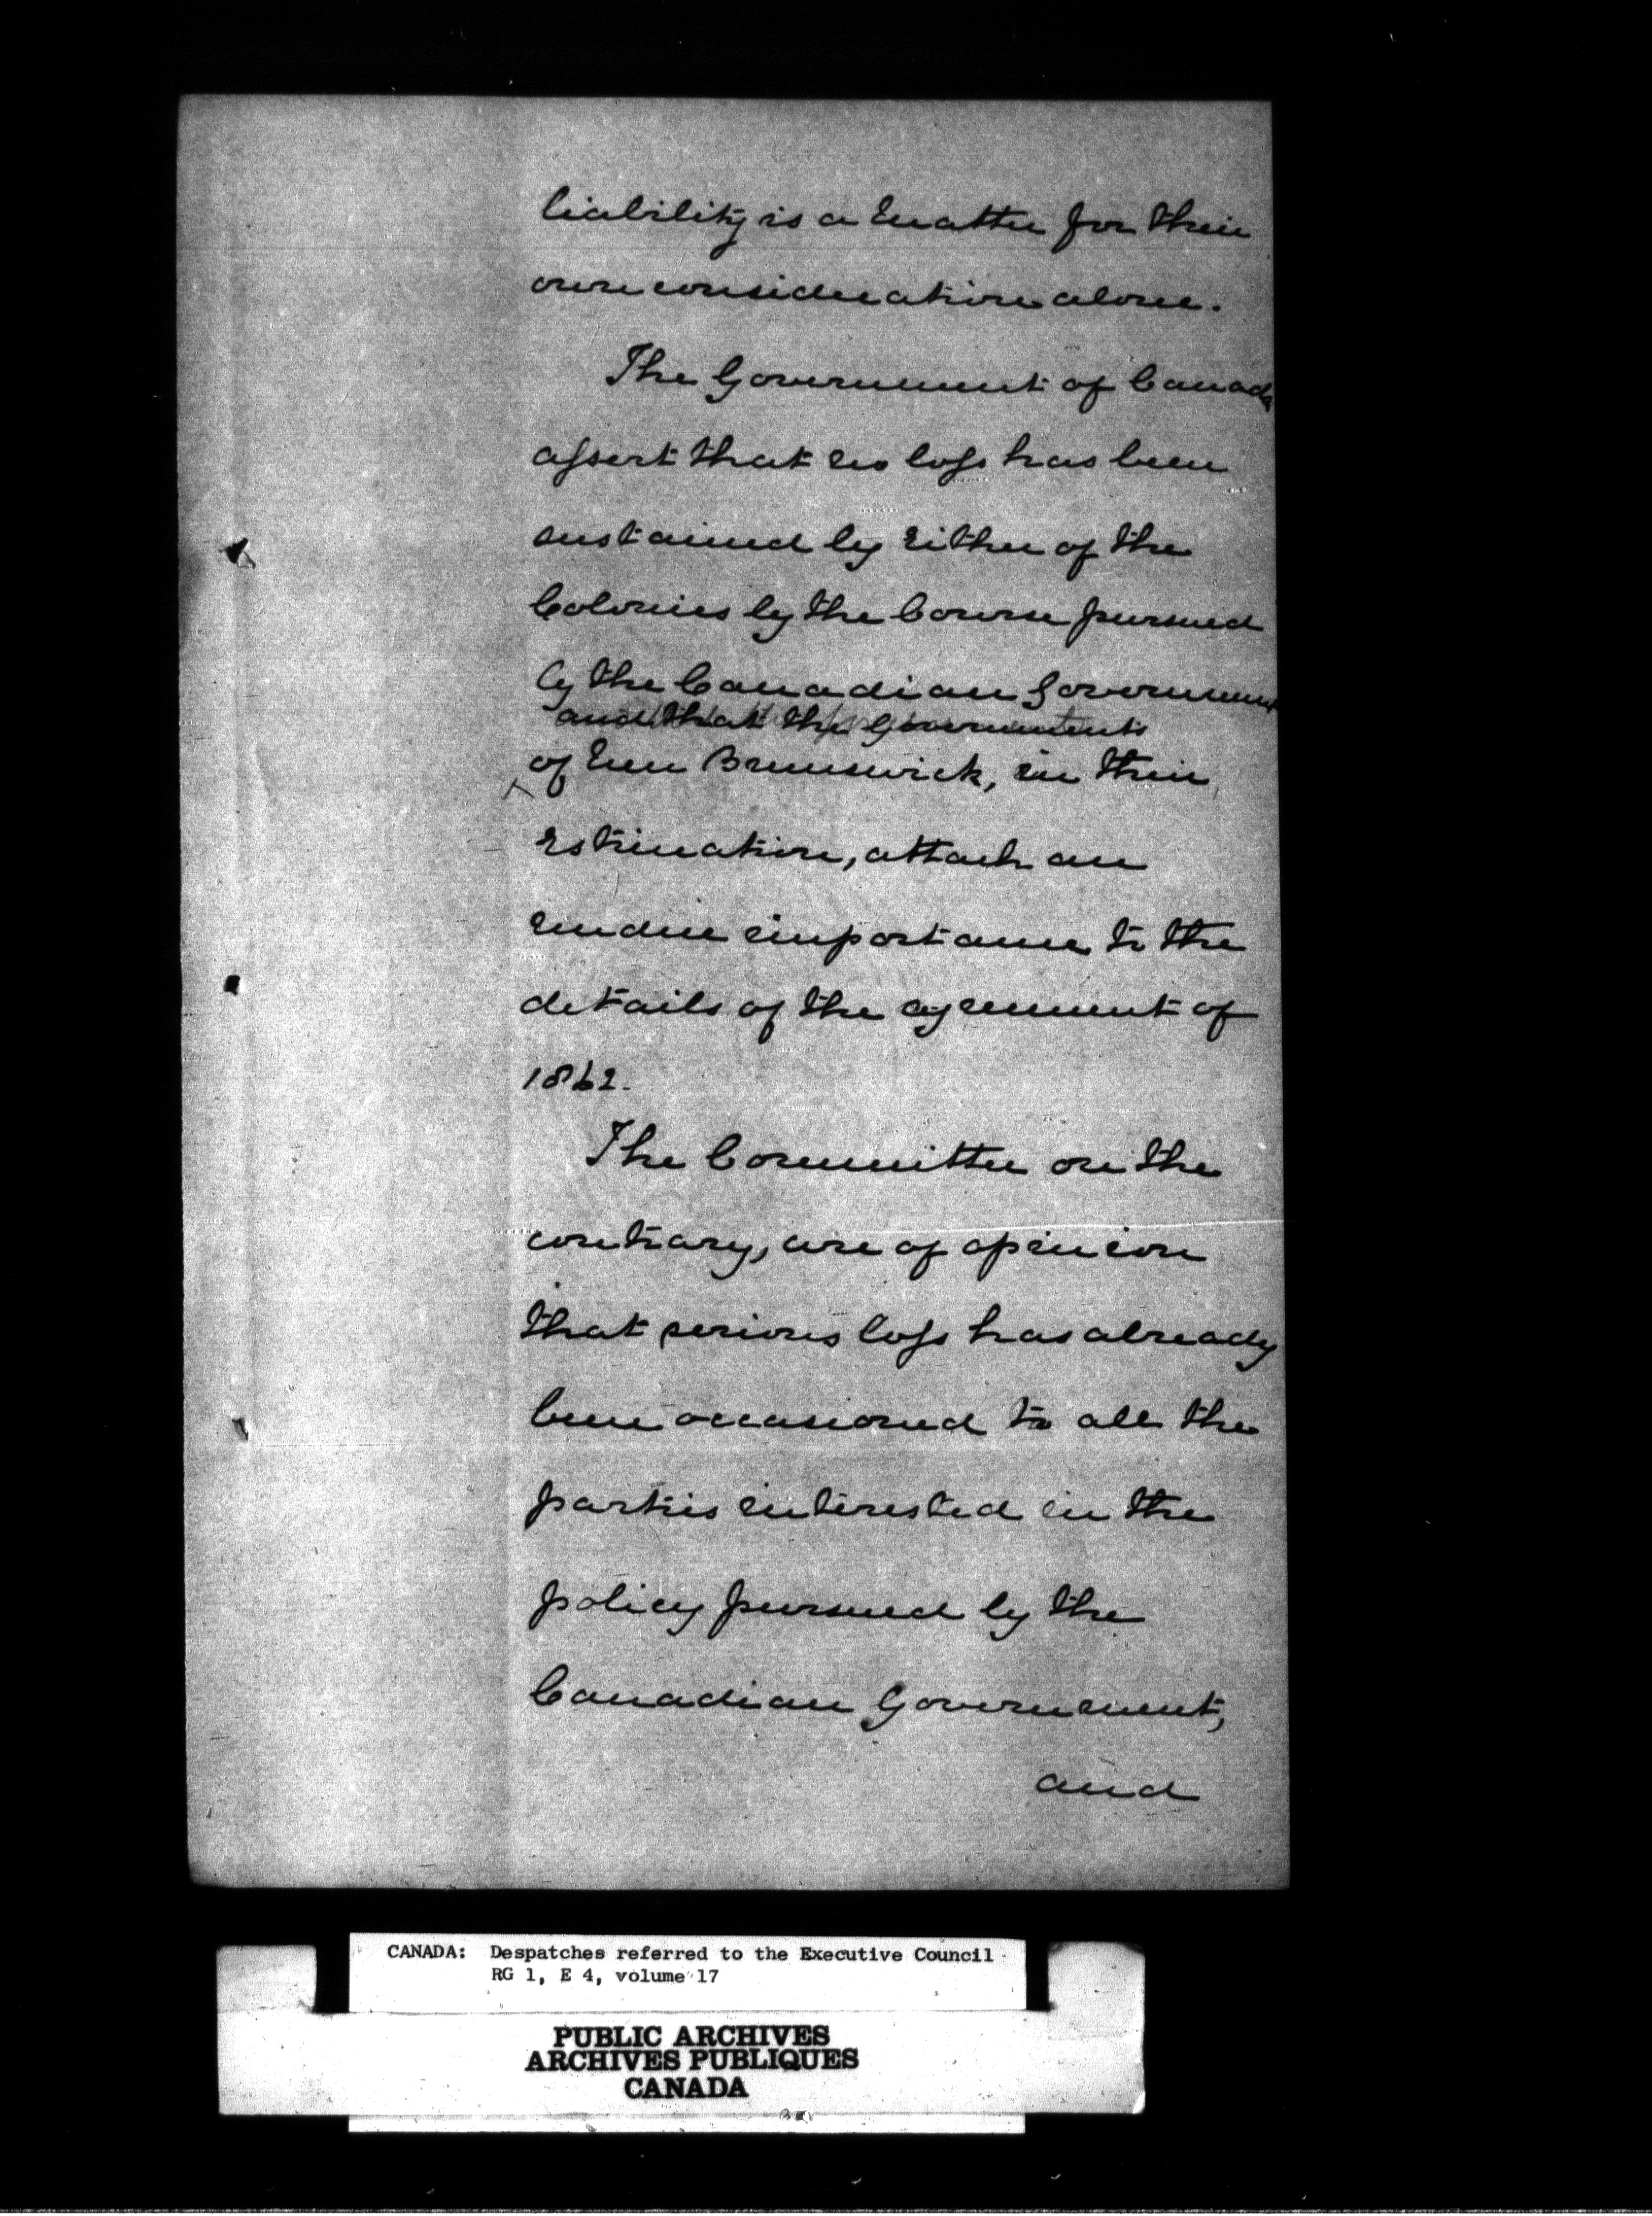 liability is a matter for their
own consideration alone.
The Government of Canada
assert that no loss has been
sustained by either of the
Colonies by the Course pursued
by the Canadian Government
and that the Governments
of New Brunswick, in their
estimation, attach an
undue importance to the
details of the agreement of
1862.
The Committee on the
contrary, are of opinion
that serious loss has already
been occasioned to all the
parties interested in the
policy pursued by the
Canadian Government,
and
CANADA: Despatches referred to the Executive Council
RG 1, E 4, volume 17
PUBLIC ARCHIVES
ARCHIVES PUBLIQUES
CANADA